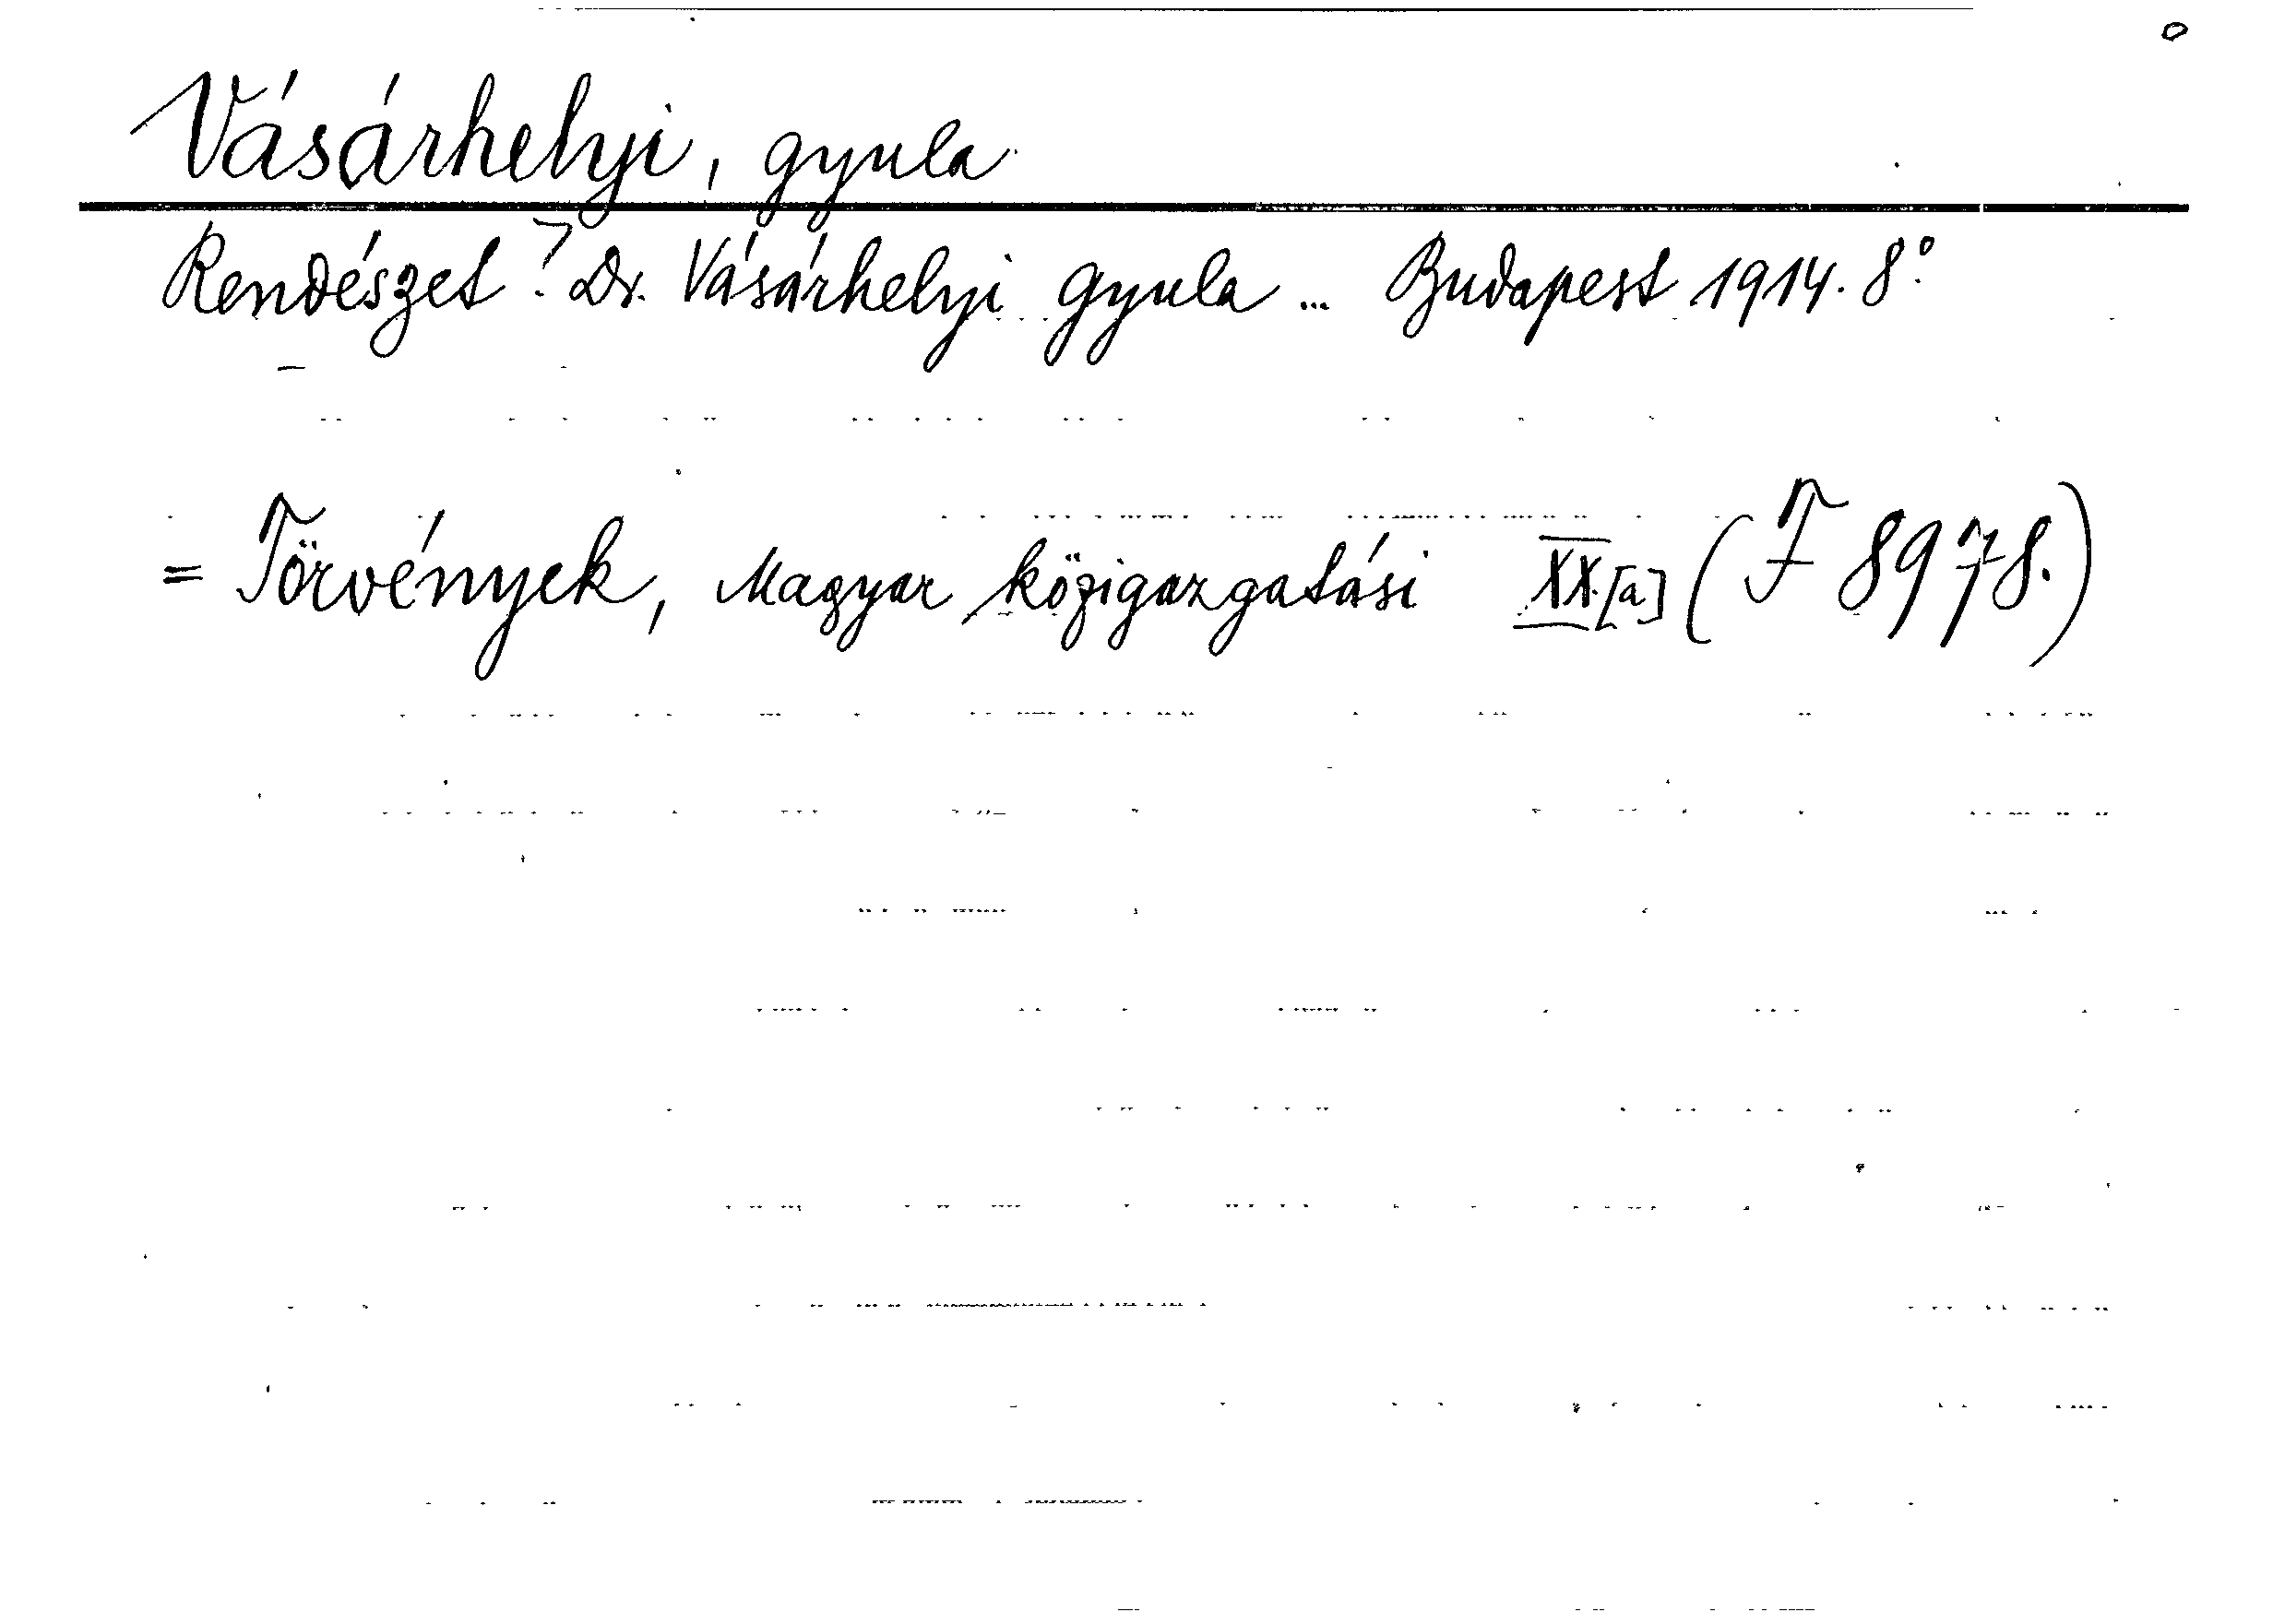 Vásárhelyi, Gyula
Rendészet. Dr. Vásárhelyi Gyula ... Budapest 1914. 8°.
= Törvények, Magyar közigazgatási XX.[a] (F 8978.)